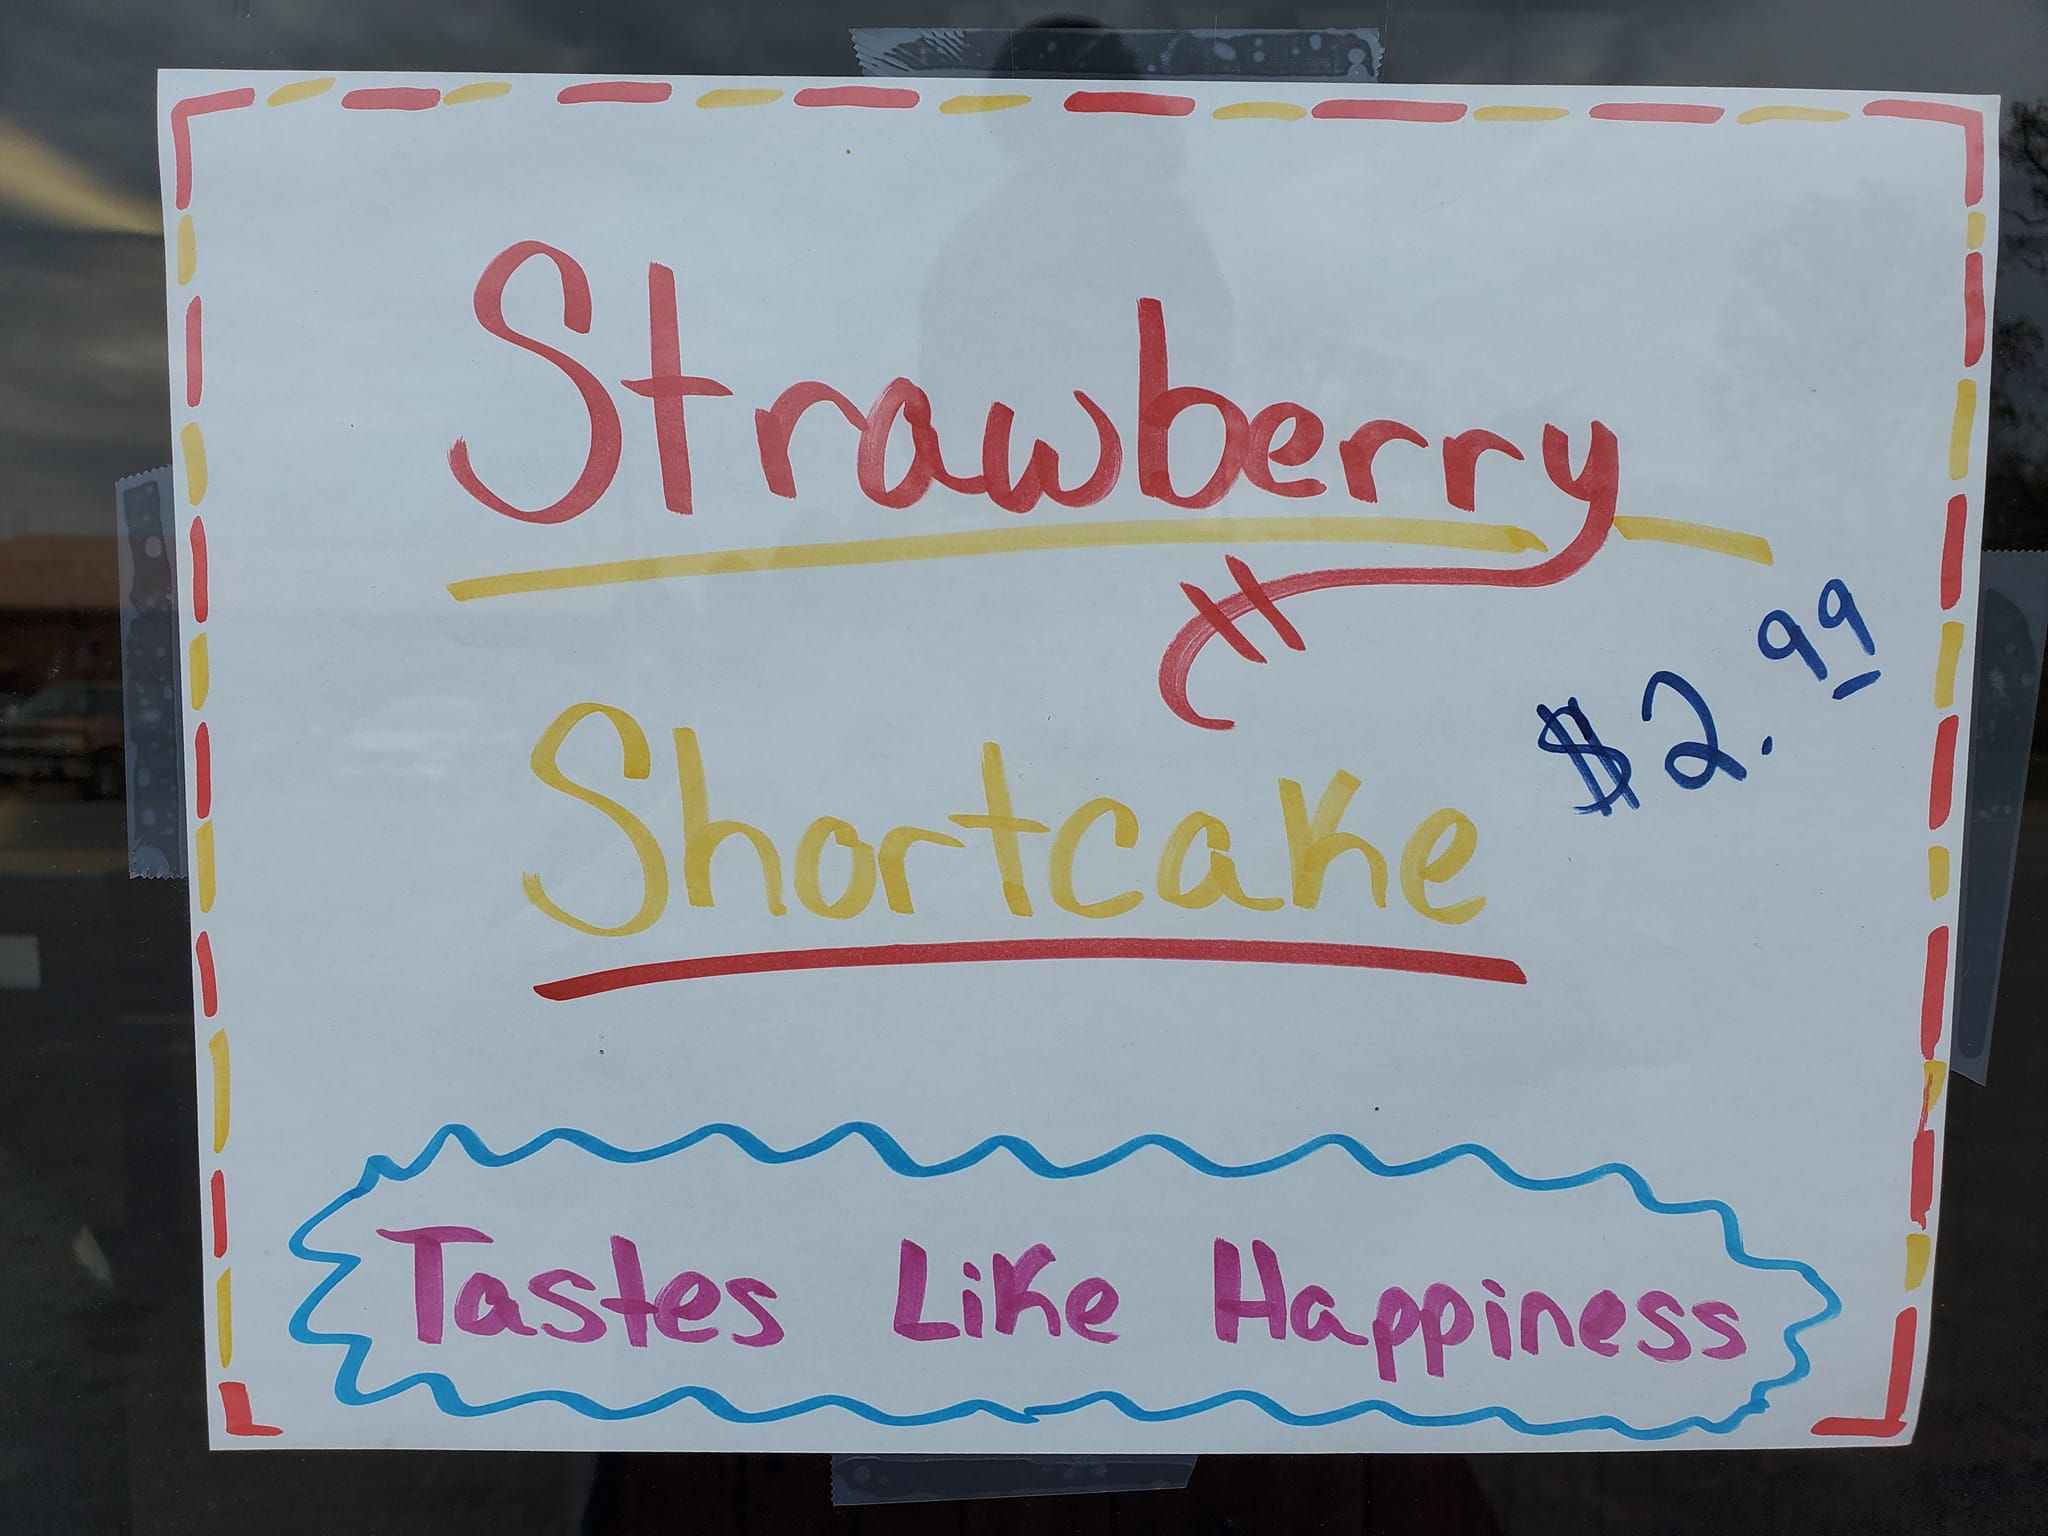 Strawberry
Shortcake
$2.99
Tastes Like Happiness